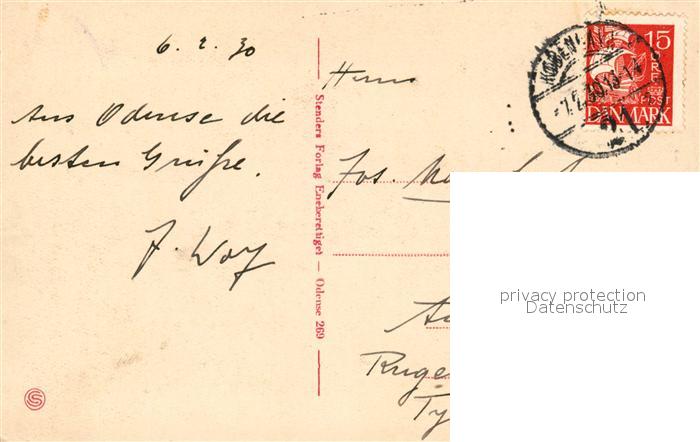 6. 2. 30
Aus Odense die
besten Grüße.
Stenders Forlag Eneberettiget — Odense 269
Herrn
Jos.
Ruge
Ty
KØBENHAVN
-7.2.30.13-14
21
15
ØRE
POST
DANMARK
privacy protection
Datenschutz
S